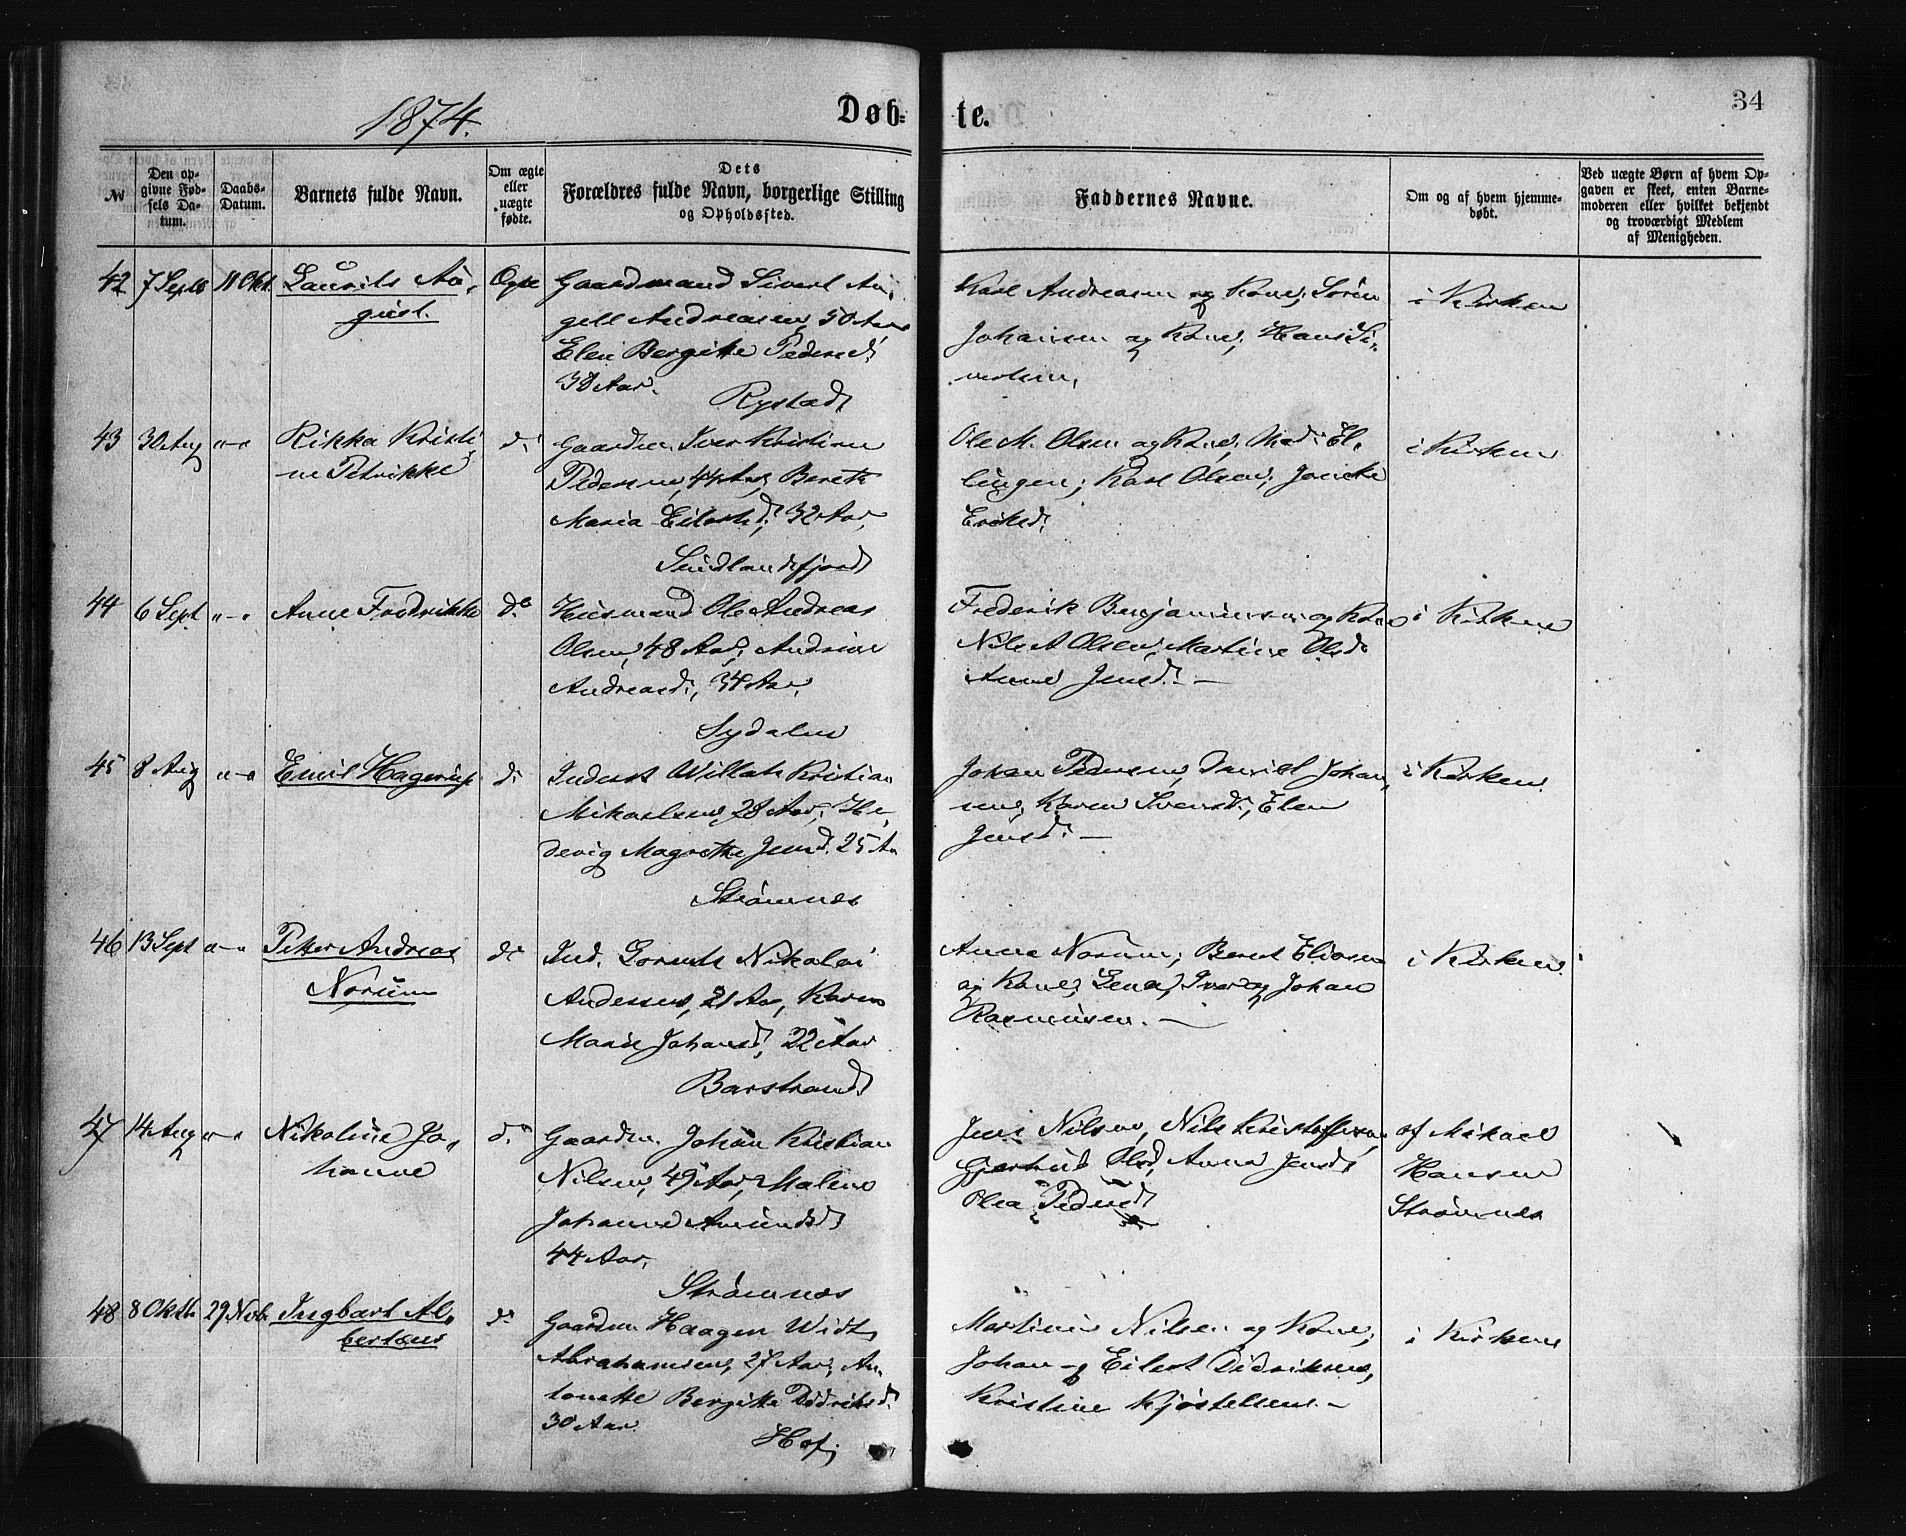 1874.
Døb=
te.
34
№
Den op-
givne Fød-
sels Da-
tum.
Daabs-
Datum.
Barnets fulde Navn.
Om ægte
eller
uægte
fødte.
Dets
Forældres fulde Navn, borgerlige Stilling
og Opholdssted.
Faddernes Navne.
Om og af hvem hjemme-
døbt.
Ved uægte Børn af hvem Op-
gaven er skeet, enten Barne-
moderen eller hvilket bekjendt
og troværdigt Medlem
af Menigheden.
42 7 Septb 11 Okt. Laurits Au-
gust.
Ægte
Gaardmand Sivert An-
gell Andreasen, 50 Aar
Elen Bergitte Pedersd.
38 Aar.
Rystad
Karl Andreasen og Kone, Søren
Johansen og Kone, Hans Si-
vertsen,
i Kirken
43 30 Aug "–" Rikka Kristi
ne Petrikke
do
Gaardm. Iver Kristian
Pedersen, 44 Aar, Bereth
Maria Eilertsd. 32 Aar,
Sundlandsfjord
Ole M. Olsen og Kone, Mad. El-
lingen; Karl Olsen;
Eriksd.
i Kirken
44 6 Sept "–" Anne Fredrikke do
Husmand Ole Andreas
Olsen, 48 Aar, Andrine
Andreasd., 34 Aar,
Sydalen
Frederik Benjaminsen og Kone
Nils A Olsen, Martine Olsd.
Anne Jensd. –
i Kirken
45 8 Aug "–" Emil Hagerup do
Inderst Willats Kristian
Mikaelsen, 28 Aar, He-
devig Magrethe Jensd. 25 Aar
Strømnæs
Johan Pedersen, Daniel Johan-
sen, Karen Svensd., Elen
Jensd. –
i Kirken.
46 13 Sept "–" Petter Andreas
Norum
do
Ind. Gorents Nikolai
Andersen, 21 Aar, Karen
Marie Johansd, 22 Aar
Barstrand
Anna Norum; Berent Eliasen
og Kone; Lena, Iver og Johan
Rasmussen. –
i Kirken
47 14 Aug "–" Nikoline Jo-
hanne
do
Gaardm. Johan Kristian
Nilsen, 49 Aar, Malene
Johanne Amundsd
44 Aar.
Strømnæs
Jens Nilsen, Nils Kristoffersen,
Gjertrud Olsd, Anna Jensd
Olea Pedersd
af Mikael
Hansen
Strømnæs
48 8 Oktb 29 Novb. Ingbart Al-
bertæus
do
Gaardm Haagen Widt
Abrahamsen, 27 Aar, An-
tonette Bergitte Didriksd.
30 Aar.
Hof,
Martinus Nilsen og Kone,
Johan og Eilert Didriksen,
Kristine Kjøstelsen. –
i Kirken